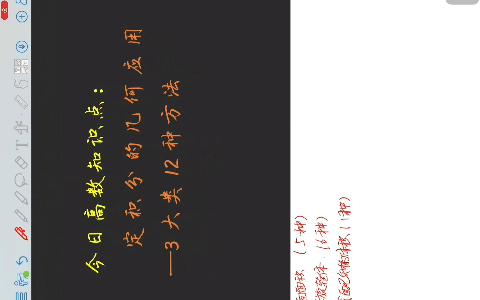 今日高数知识点:
定积分的几何应用
—3大类12种方法
面积 (5种)
旋转体 (6种)
(1种)